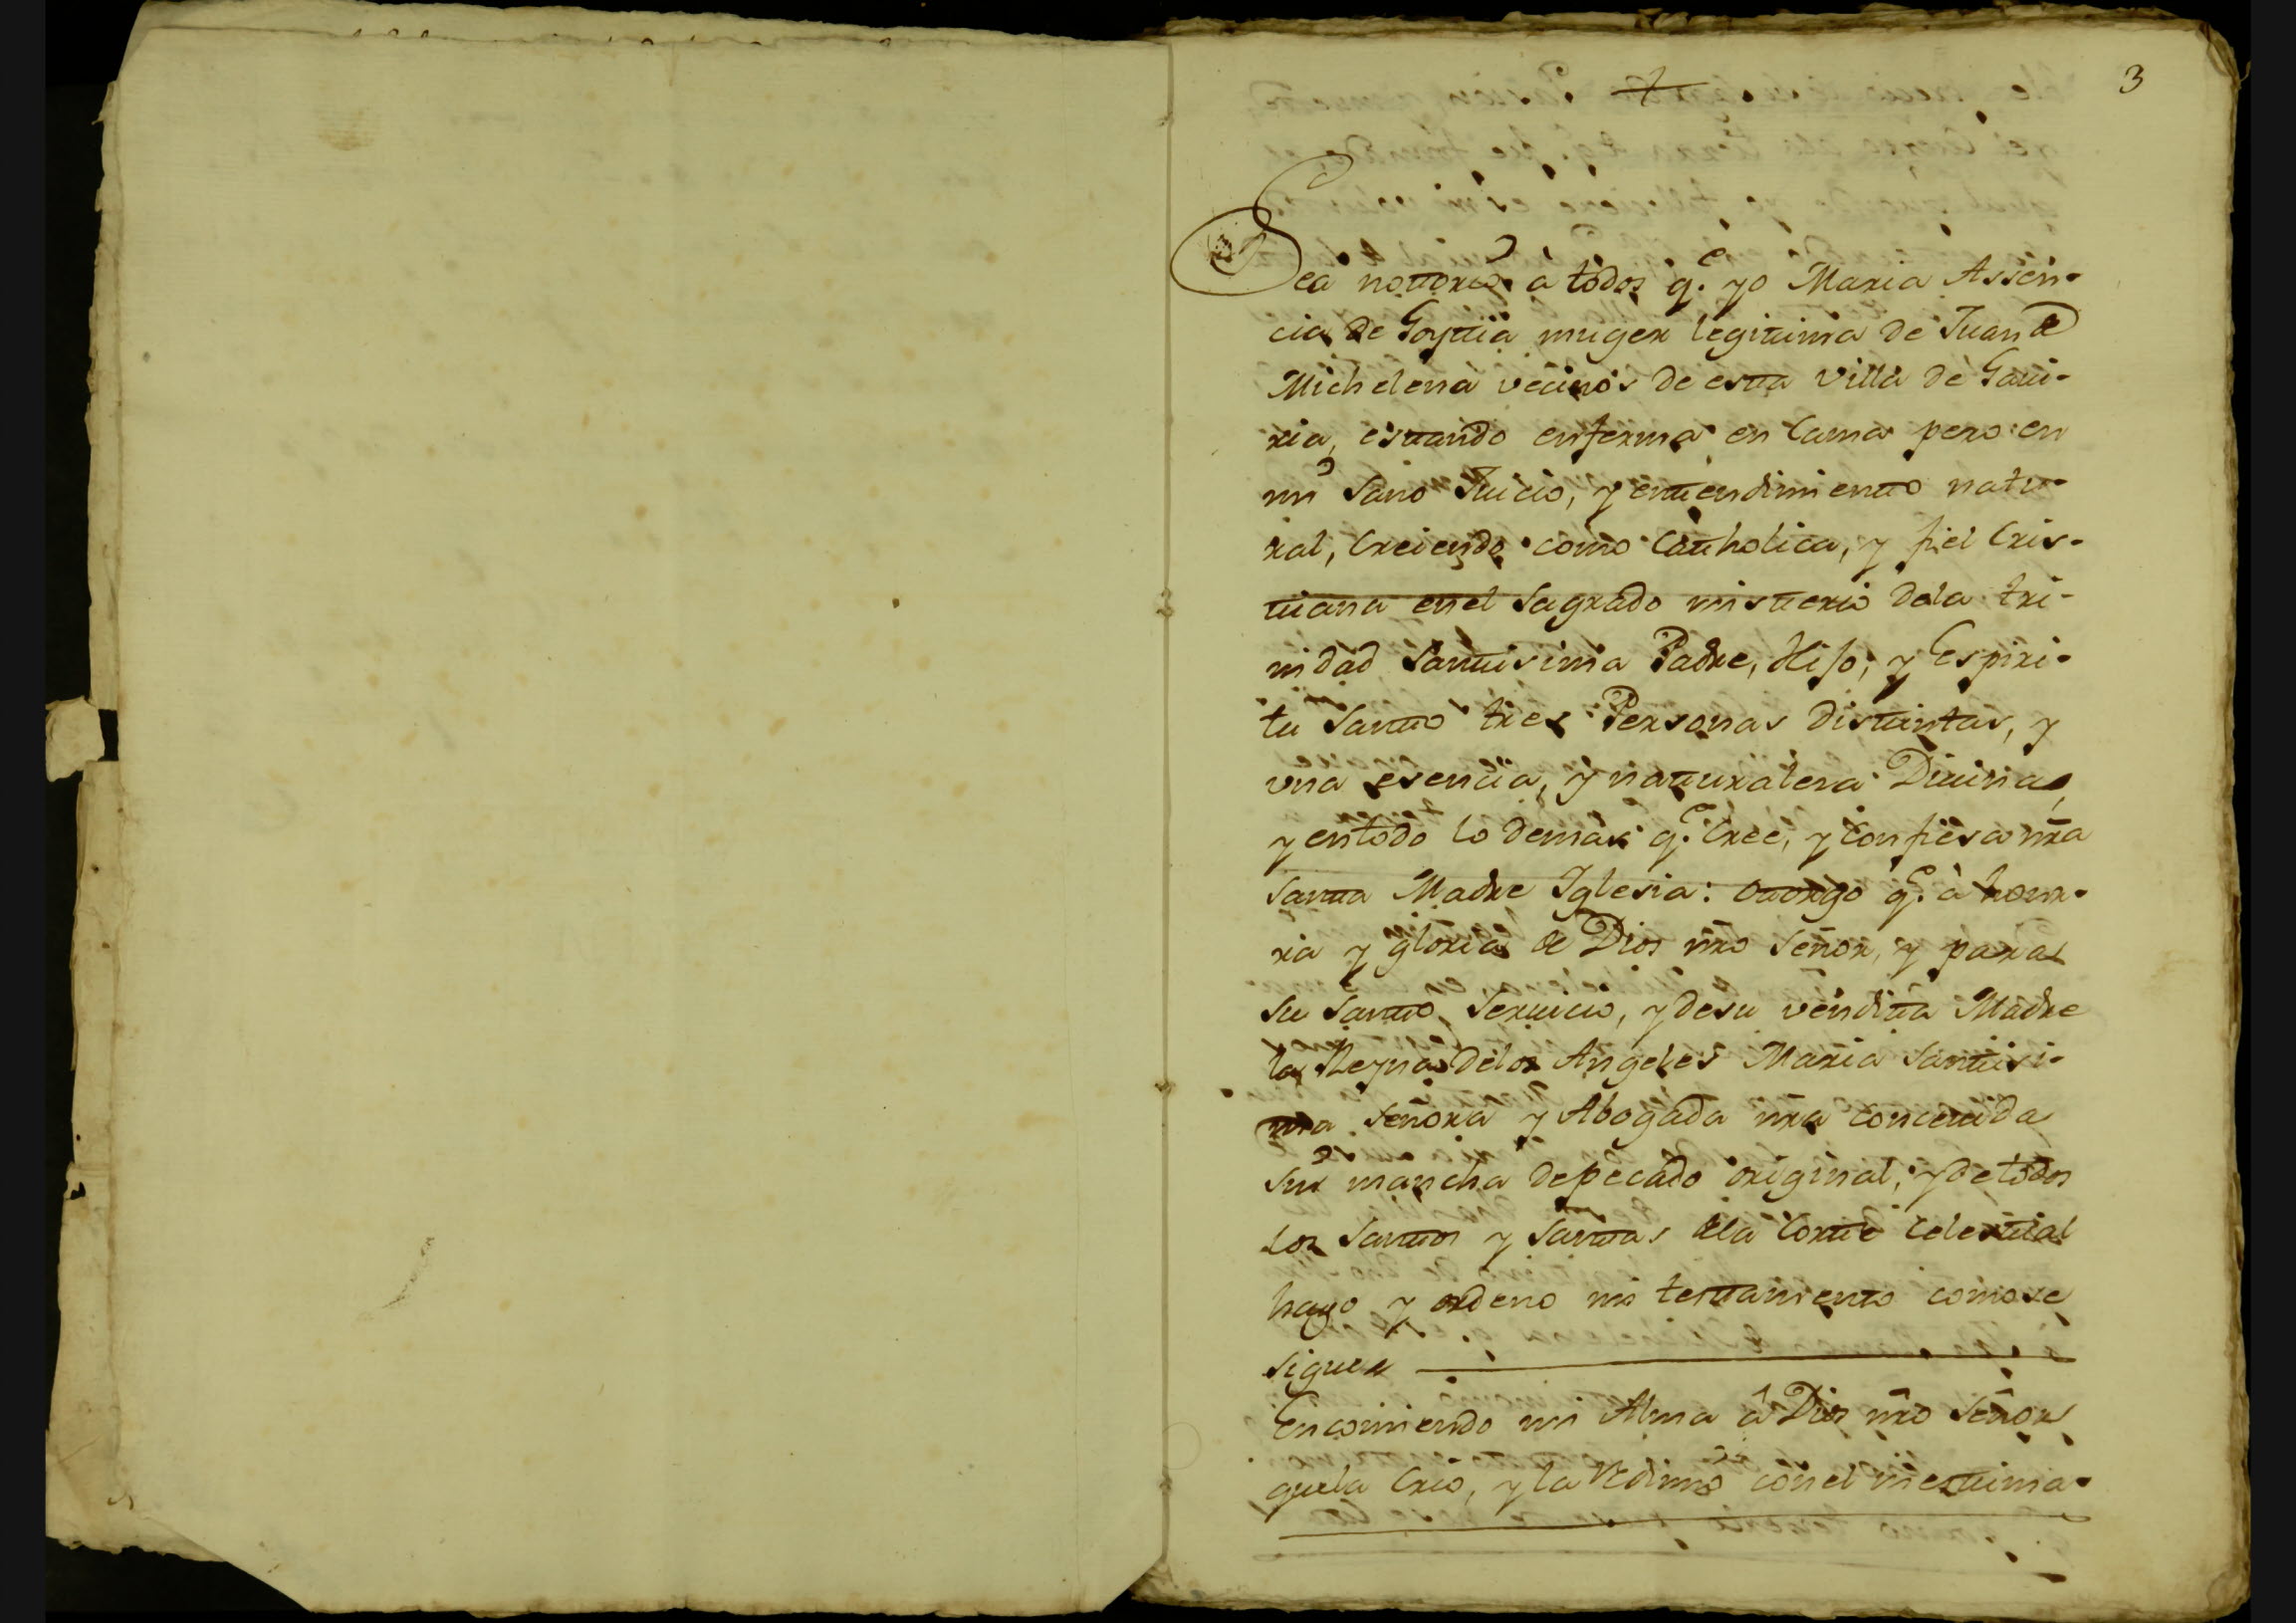 3
Sea nottorio à todos q.e yo Maria Assen-
cia de Goyttia muger legitima de Juan de
Michelena vecinos de estta Villa de Gavi-
ria, esttando enferma en Cama pero en
mi Sano Juicio, y enttendimientto natu-
ral, Creiendo como Catholica, y fiel Cris-
ttiana en el Sagrado mistterio dela tri-
nidad Santtisima Padre, Hijo, y Espiri-
tu Santto tres Personas disttintas, y
vna esencia, y natturaleza Diuina,
y entodo lo demas q.e Cree, y Confiesa nr̃a
Santta Madre Iglesia: ottorgo q.e à honr-
ra y gloria de Dios nr̃o Señor, y para
su Santto Seruicio, y desu vendita Madre
la Reyna delos Angeles Maria Santtisi-
ma Señora y Abogada nr̃a Conceuida
sin mancha depecado original, y de todos
los Santtos y Santtas dela Cortte Celesttial
hago y ordeno mi testtamentto como se
sigue
Encomiendo mi Alma â Dios nr̃o Señor
quela Crio, y la Redimio con el inesttima-